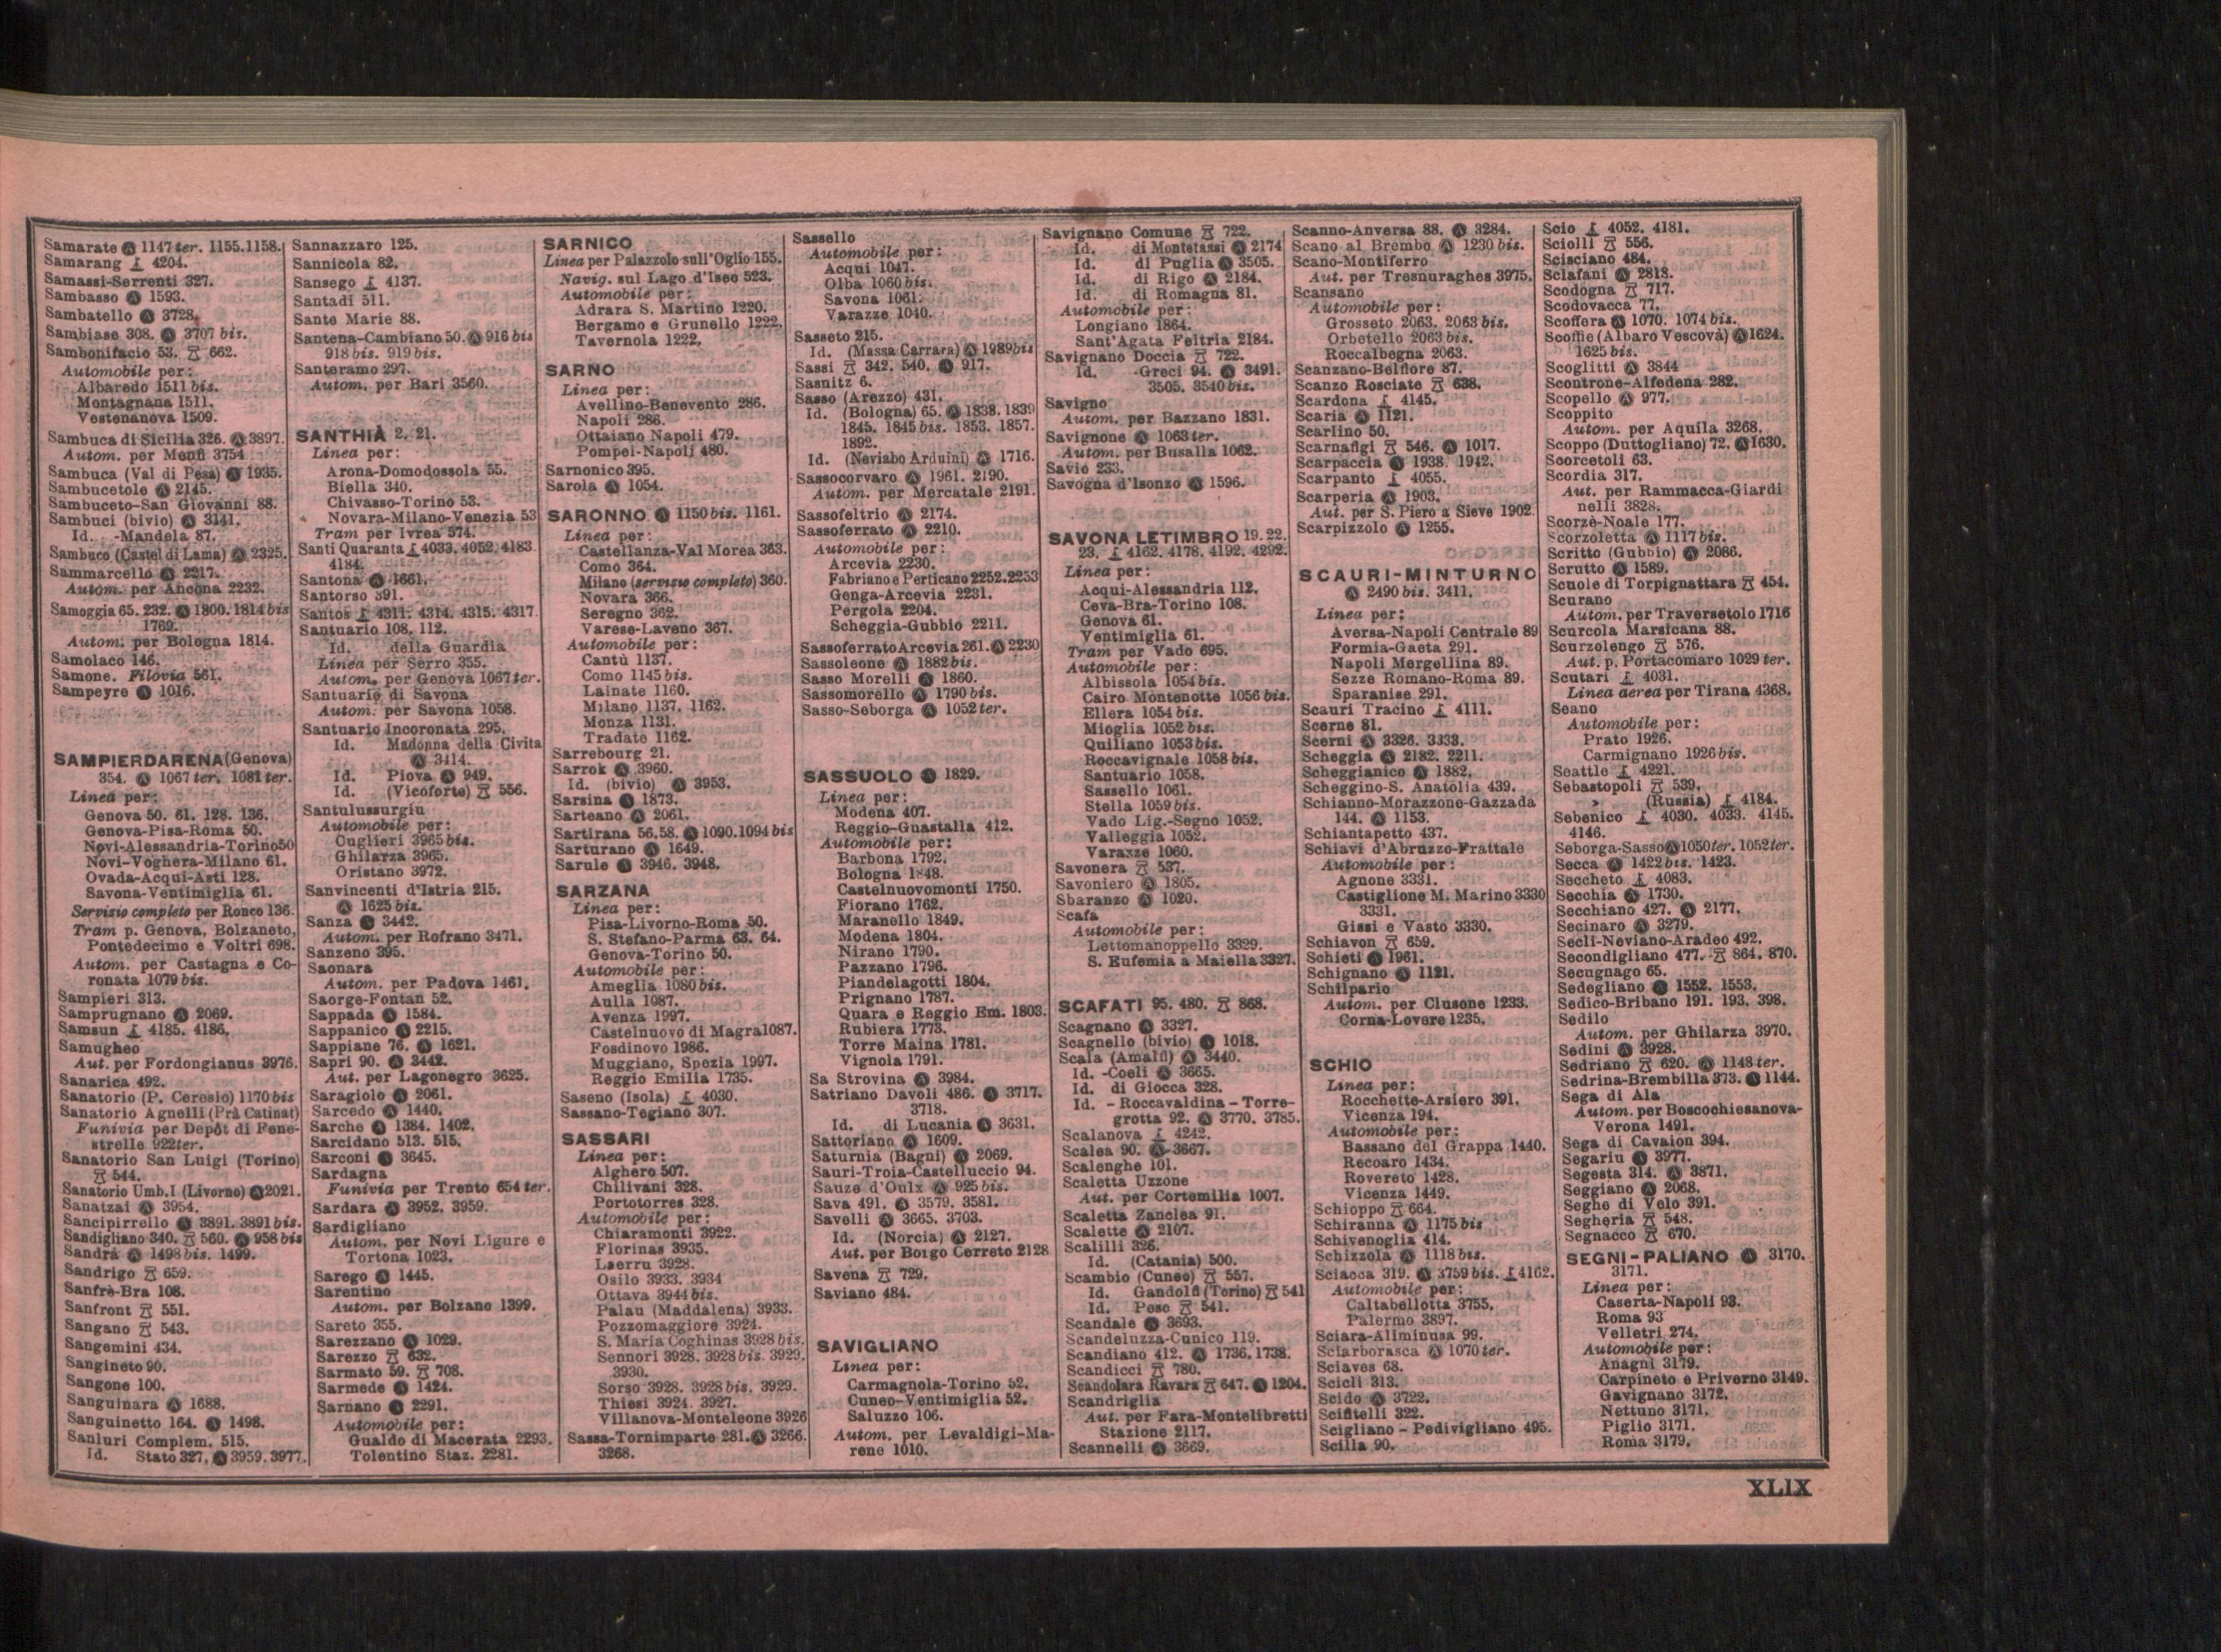 Samarate Ⓐ 1147 ter. 1155.1158.
Samarang ⚓ 4204.
Samassi-Serrenti 327.
Sambasso Ⓐ 1593.
Sambatello Ⓐ 3728.
Sambiase 308. Ⓐ 3707 bis.
Sambonifacio 53. 🚋 662.
Automobile per:
Albaredo 1511 bis.
Montagnana 1511.
Vestenanova 1509.
Sambuca di Sicilia 326. Ⓐ 3897.
Autom. per Menfi 3754
Sambuca (Val di Pesa) Ⓐ 1935.
Sambucetole Ⓐ 2145.
Sambuceto-San Giovanni 88.
Sambuci (bivio) Ⓐ 3141.
Id. -Mandela 87.
Sambuco (Castel di Lama) Ⓐ 2325.
Sammarcello Ⓐ 2217.
Autom. per Ancona 2232.
Samoggia 65. 232. Ⓐ 1800. 1814 bis
1769.
Autom. per Bologna 1814.
Samolaco 146.
Samone. Filovia 561.
Sampeyre Ⓐ 1016.
SAMPIERDARENA (Genova)
354. Ⓐ 1067 ter. 1081 ter.
Linea per:
Genova 50. 61. 128. 136.
Genova-Pisa-Roma 50.
Novi-Alessandria-Torino 50
Novi-Voghera-Milano 61.
Ovada-Acqui-Asti 128.
Savona-Ventimiglia 61.
Servizio completo per Ronco 136.
Tram p. Genova, Bolzaneto,
Pontedecimo e Voltri 698.
Autom. per Castagna e Co-
ronata 1079 bis.
Sampieri 313.
Samprugnano Ⓐ 2069.
Samsun ⚓ 4185. 4186.
Samugheo
Aut. per Fordongianus 3976.
Sanarica 492.
Sanatorio (P. Ceresio) 1170 bis
Sanatorio Agnelli (Prà Catinat)
Funivia per Depôt di Fene-
strelle 922ter.
Sanatorio San Luigi (Torino)
🚋 544.
Sanatorio Umb. I (Livorno) Ⓐ 2021.
Sanatzai Ⓐ 3954.
Sancipirrello Ⓐ 3891. 3891 bis.
Sandigliano 340. 🚋 560. Ⓐ 958 bis
Sandrà Ⓐ 1498 bis. 1499.
Sandrigo 🚋 659.
Sanfrè-Bra 108.
Sanfront 🚋 551.
Sangano 🚋 543.
Sangemini 434.
Sangineto 90.
Sangone 100.
Sanguinara Ⓐ 1688.
Sanguinetto 164. Ⓐ 1498.
Sanluri Complem. 515.
Id. Stato 327. Ⓐ 3959. 3977.
Sannazzaro 125.
Sannicola 82.
Sansego ⚓ 4137.
Santadi 511.
Sante Marie 88.
Santena-Cambiano 50. Ⓐ 916 bis
918 bis. 919 bis.
Santeramo 297.
Autom. per Bari 3560.
SANTHIÀ 2. 21.
Linea per:
Arona-Domodossola 55.
Biella 340.
Chivasso-Torino 53.
Novara-Milano-Venezia 53
Tram per Ivrea 574.
Santi Quaranta ⚓ 4033. 4052. 4183
4184.
Santona Ⓐ 1661.
Santorso 391.
Santos ⚓ 4311. 4314. 4315. 4317
Santuario 108. 112.
Id. della Guardia
Linea per Serro 355.
Autom. per Genova 1067 ter.
Santuario di Savona
Autom. per Savona 1058.
Santuario Incoronata 295.
Id. Madonna della Civita
Ⓐ 3414.
Id. Piova Ⓐ 949.
Id. (Vicoforte) 🚋 556.
Santulussurgiu
Automobile per:
Cuglieri 3965 bis.
Ghilarza 3965.
Oristano 3972.
Sanvincenti d'Istria 215.
Ⓐ 1625 bis.
Sanza Ⓐ 3442.
Autom. per Rofrano 3471.
Sanzeno 395.
Saonara
Autom. per Padova 1461.
Saorge-Fontan 52.
Sappada Ⓐ 1584.
Sappanico Ⓐ 2215.
Sappiane 76. Ⓐ 1621.
Sapri 90. Ⓐ 3442.
Aut. per Lagonegro 3625.
Saragiolo Ⓐ 2061.
Sarcedo Ⓐ 1440.
Sarche Ⓐ 1384. 1402.
Sarcidano 513. 515.
Sarconi Ⓐ 3645.
Sardagna
Funivia per Trento 654 ter.
Sardara Ⓐ 3952. 3959.
Sardigliano
Autom. per Novi Ligure e
Tortona 1023.
Sarego Ⓐ 1445.
Sarentino
Autom. per Bolzano 1399.
Sareto 355.
Sarezzano Ⓐ 1029.
Sarezzo 🚋 632.
Sarmato 59. 🚋 708.
Sarmede Ⓐ 1424.
Sarnano Ⓐ 2291.
Automobile per:
Gualdo di Macerata 2293.
Tolentino Staz. 2281.
SARNICO
Linea per Palazzolo sull'Oglio 155.
Navig. sul Lago d'Iseo 523.
Automobile per:
Adrara S. Martino 1220.
Bergamo e Grunello 1222.
Tavernola 1222.
SARNO
Linea per:
Avellino-Benevento 286.
Napoli 286.
Ottaiano Napoli 479.
Pompei-Napoli 480.
Sarnonico 395.
Sarola Ⓐ 1054.
SARONNO Ⓐ 1150 bis. 1161.
Linea per:
Castellanza-Val Morea 363.
Como 364.
Milano (servizio completo) 360.
Novara 366.
Seregno 362.
Varese-Laveno 367.
Automobile per:
Cantù 1137.
Como 1145 bis.
Lainate 1160.
Milano 1137. 1162.
Monza 1131.
Tradate 1162.
Sarrebourg 21.
Sarrok Ⓐ 3960.
Id. (bivio) Ⓐ 3953.
Sarsina Ⓐ 1873.
Sarteano Ⓐ 2061.
Sartirana 56. 58. Ⓐ 1090. 1094 bis
Sarturano Ⓐ 1649.
Sarule Ⓐ 3946. 3948.
SARZANA
Linea per:
Pisa-Livorno-Roma 50.
S. Stefano-Parma 63. 64.
Genova-Torino 50.
Automobile per:
Ameglia 1080 bis.
Aulla 1087.
Avenza 1997.
Castelnuovo di Magra 1087.
Fosdinovo 1986.
Muggiano, Spezia 1997.
Reggio Emilia 1735.
Saseno (Isola) ⚓ 4030.
Sassano-Tegiano 307.
SASSARI
Linea per:
Alghero 507.
Chilivani 328.
Portotorres 328.
Automobile per:
Chiaramonti 3922.
Florinas 3935.
Laerru 3928.
Osilo 3933. 3934
Ottava 3944 bis.
Palau (Maddalena) 3933.
Pozzomaggiore 3924.
S. Maria Coghinas 3928 bis.
Sennori 3928. 3928 bis. 3929.
3930.
Sorso 3928. 3928 bis. 3929.
Thiesi 3924. 3927.
Villanova-Monteleone 3926
Sassa-Tornimparte 281. Ⓐ 3266.
3268.
Sassello
Automobile per:
Acqui 1047.
Olba 1060 bis.
Savona 1061.
Varazze 1040.
Sasseto 215.
Id. (Massa Carrara) Ⓐ 1989 bis
Sassi 🚋 342. 540. Ⓐ 917.
Sasnitz 6.
Sasso (Arezzo) 431.
Id. (Bologna) 65. Ⓐ 1838. 1839
1845. 1845 bis. 1853. 1857.
1892.
Id. (Neviabo Arduini) Ⓐ 1716.
Sassocorvaro Ⓐ 1961. 2190.
Autom. per Mercatale 2191.
Sassofeltrio Ⓐ 2174.
Sassoferrato Ⓐ 2210.
Automobile per:
Arcevia 2230.
Fabriano e Perticano 2252. 2253
Genga-Arcevia 2231.
Pergola 2204.
Scheggia-Gubbio 2211.
Sassoferrato Arcevia 261. Ⓐ 2230
Sassoleone Ⓐ 1882 bis.
Sasso Morelli Ⓐ 1860.
Sassomorello Ⓐ 1790 bis.
Sasso-Seborga Ⓐ 1052 ter.
SASSUOLO Ⓐ 1829.
Linea per:
Modena 407.
Reggio-Guastalla 412.
Automobile per:
Barbona 1792.
Bologna 1848.
Castelnuovomonti 1750.
Fiorano 1762.
Maranello 1849.
Modena 1804.
Nirano 1790.
Pazzano 1796.
Piandelagotti 1804.
Prignano 1787.
Quara e Reggio Em. 1803.
Rubiera 1773.
Torre Maina 1781.
Vignola 1791.
Sa Strovina Ⓐ 3984.
Satriano Davoli 486. Ⓐ 3717.
3718.
Id. di Lucania Ⓐ 3631.
Sattoriano Ⓐ 1609.
Saturnia (Bagni) Ⓐ 2069.
Sauri-Troia-Castelluccio 94.
Sauze d'Oulx Ⓐ 925 bis.
Sava 491. Ⓐ 3579. 3581.
Savelli Ⓐ 3665. 3703.
Id. (Norcia) Ⓐ 2127.
Aut. per Borgo Cerreto 2128
Savena 🚋 729.
Saviano 484.
SAVIGLIANO
Linea per:
Carmagnola-Torino 52.
Cuneo-Ventimiglia 52.
Saluzzo 106.
Autom. per Levaldigi-Ma-
rene 1010.
Savignano Comune 🚋 722.
Id. di Montetassi Ⓐ 2174
Id. di Puglia Ⓐ 3505.
Id. di Rigo Ⓐ 2184.
Id. di Romagna 81.
Automobile per:
Longiano 1864.
Sant'Agata Feltria 2184.
Savignano Doccia 🚋 722.
Id. -Greci 94. Ⓐ 3491.
3505. 3540 bis.
Savigno
Autom. per Bazzano 1831.
Savignone Ⓐ 1063 ter.
Autom. per Busalla 1062.
Savio 233.
Savogna d'Isonzo Ⓐ 1596.
SAVONA LETIMBRO 19. 22.
23. ⚓ 4162. 4178. 4192. 4292.
Linea per:
Acqui-Alessandria 112.
Ceva-Bra-Torino 108.
Genova 61.
Ventimiglia 61.
Tram per Vado 695.
Automobile per:
Albissola 1054 bis.
Cairo Montenotte 1056 bis.
Ellera 1054 bis.
Mioglia 1052 bis.
Quiliano 1053 bis.
Roccavignale 1058 bis.
Santuario 1058.
Sassello 1061.
Stella 1059 bis.
Vado Lig.-Segno 1052.
Valleggia 1052.
Varazze 1060.
Savonera 🚋 537.
Savoniero Ⓐ 1805.
Sbaranzo Ⓐ 1020.
Scafa
Automobile per:
Lettomanoppello 3329.
S. Eufemia a Maiella 3327.
SCAFATI 95. 480. 🚋 868.
Scagnano Ⓐ 3327.
Scagnello (bivio) Ⓐ 1018.
Scala (Amalfi) Ⓐ 3440.
Id. -Coeli Ⓐ 3665.
Id. di Giocca 328.
Id. - Roccavaldina - Torre-
grotta 92. Ⓐ 3770. 3785.
Scalanova ⚓ 4242.
Scalea 90. Ⓐ 3667.
Scalenghe 101.
Scaletta Uzzone
Aut. per Cortemilia 1007.
Scaletta Zanclea 91.
Scalette Ⓐ 2107.
Scalilli 326.
Id. (Catania) 500.
Scambio (Cuneo) 🚋 557.
Id. Gandolfi (Torino) 🚋 541
Id. Peso 🚋 541.
Scandale Ⓐ 3693.
Scandeluzza-Cunico 119.
Scandiano 412. Ⓐ 1736. 1738.
Scandicci 🚋 780.
Scandolara Ravara 🚋 647. Ⓐ 1204.
Scandriglia
Aut. per Fara-Montelibretti
Stazione 2117.
Scannelli Ⓐ 3669.
Scanno-Anversa 88. Ⓐ 3284.
Scano al Brembo Ⓐ 1230 bis.
Scano-Montiferro
Aut. per Tresnuraghes 3975.
Scansano
Automobile per:
Grosseto 2063. 2063 bis.
Orbetello 2063 bis.
Roccalbegna 2063.
Scanzano-Belfiore 87.
Scanzo Rosciate 🚋 638.
Scardona ⚓ 4145.
Scaria Ⓐ 1121.
Scarlino 50.
Scarnafigi 🚋 546. Ⓐ 1017.
Scarpaccia Ⓐ 1938. 1942.
Scarpanto ⚓ 4055.
Scarperia Ⓐ 1903.
Aut. per S. Piero a Sieve 1902.
Scarpizzolo Ⓐ 1255.
SCAURI-MINTURNO
Ⓐ 2490 bis. 3411.
Linea per:
Aversa-Napoli Centrale 89
Formia-Gaeta 291.
Napoli Mergellina 89.
Sezze Romano-Roma 89.
Sparanise 291.
Scauri Tracino ⚓ 4111.
Scerne 81.
Scerni Ⓐ 3326. 3333.
Scheggia Ⓐ 2182. 2211.
Scheggianico Ⓐ 1882.
Scheggino-S. Anatolia 439.
Schianno-Morazzone-Gazzada
144. Ⓐ 1153.
Schiantapetto 437.
Schiavi d'Abruzzo-Frattale
Automobile per:
Agnone 3331.
Castiglione M. Marino 3330
3331.
Gissi e Vasto 3330.
Schiavon 🚋 659.
Schieti Ⓐ 1961.
Schignano Ⓐ 1121.
Schilpario
Autom. per Clusone 1233.
Corna-Lovere 1235.
SCHIO
Linea per:
Rocchette-Arsiero 391.
Vicenza 194.
Automobile per:
Bassano del Grappa 1440.
Recoaro 1434.
Rovereto 1428.
Vicenza 1449.
Schioppo 🚋 664.
Schiranna Ⓐ 1175 bis
Schivenoglia 414.
Schizzola Ⓐ 1118 bis.
Sciacca 319. Ⓐ 3759 bis. ⚓ 4162.
Automobile per:
Caltabellotta 3755.
Palermo 3897.
Sciara-Aliminusa 99.
Sciarborasca Ⓐ 1070 ter.
Sciaves 68.
Scicli 313.
Scido Ⓐ 3722.
Scifitelli 322.
Scigliano - Pedivigliano 495.
Scilla 90.
Scio ⚓ 4052. 4181.
Sciolli 🚋 556.
Scisciano 484.
Sclafani Ⓐ 2818.
Scodogna 🚋 717.
Scodovacca 77.
Scoffera Ⓐ 1070. 1074 bis.
Scoffie (Albaro Vescovà) Ⓐ 1624.
1625 bis.
Scoglitti Ⓐ 3844
Scontrone-Alfedena 282.
Scopello Ⓐ 977.
Scoppito
Autom. per Aquila 3268.
Scoppo (Duttogliano) 72. Ⓐ 1630.
Scorcetoli 63.
Scordia 317.
Aut. per Rammacca-Giardi
nelli 3828.
Scorzè-Noale 177.
Scorzoletta Ⓐ 1117 bis.
Scritto (Gubbio) Ⓐ 2086.
Scrutto Ⓐ 1589.
Scuole di Torpignattara 🚋 454.
Scurano
Autom. per Traversetolo 1716
Scurcola Marsicana 88.
Scurzolengo 🚋 576.
Aut. p. Portacomaro 1029 ter.
Scutari ⚓ 4031.
Linea aerea per Tirana 4368.
Seano
Automobile per:
Prato 1926.
Carmignano 1926 bis.
Seattle ⚓ 4221.
Sebastopoli 🚋 539.
» (Russia) ⚓ 4184.
Sebenico ⚓ 4030. 4033. 4145.
4146.
Seborga-Sasso Ⓐ 1050 ter. 1052 ter.
Secca Ⓐ 1422 bis. 1423.
Seccheto ⚓ 4083.
Secchia Ⓐ 1730.
Secchiano 427. Ⓐ 2177.
Secinaro Ⓐ 3279.
Seclì-Neviano-Aradeo 492.
Secondigliano 477. 🚋 864. 870.
Secugnago 65.
Sedegliano Ⓐ 1552. 1553.
Sedico-Bribano 191. 193. 398.
Sedilo
Autom. per Ghilarza 3970.
Sedini Ⓐ 3928.
Sedriano 🚋 620. Ⓐ 1148 ter.
Sedrina-Brembilla 373. Ⓐ 1144.
Sega di Ala
Autom. per Boscochiesanova-
Verona 1491.
Sega di Cavaion 394.
Segariu Ⓐ 3977.
Segesta 314. Ⓐ 3871.
Seggiano Ⓐ 2068.
Seghe di Velo 391.
Segheria 🚋 548.
Segnacco 🚋 670.
SEGNI-PALIANO Ⓐ 3170.
3171.
Linea per:
Caserta-Napoli 93.
Roma 93
Velletri 274.
Automobile per:
Anagni 3179.
Carpineto e Priverno 3149.
Gavignano 3172.
Nettuno 3171.
Piglio 3171.
Roma 3179.
XLIX